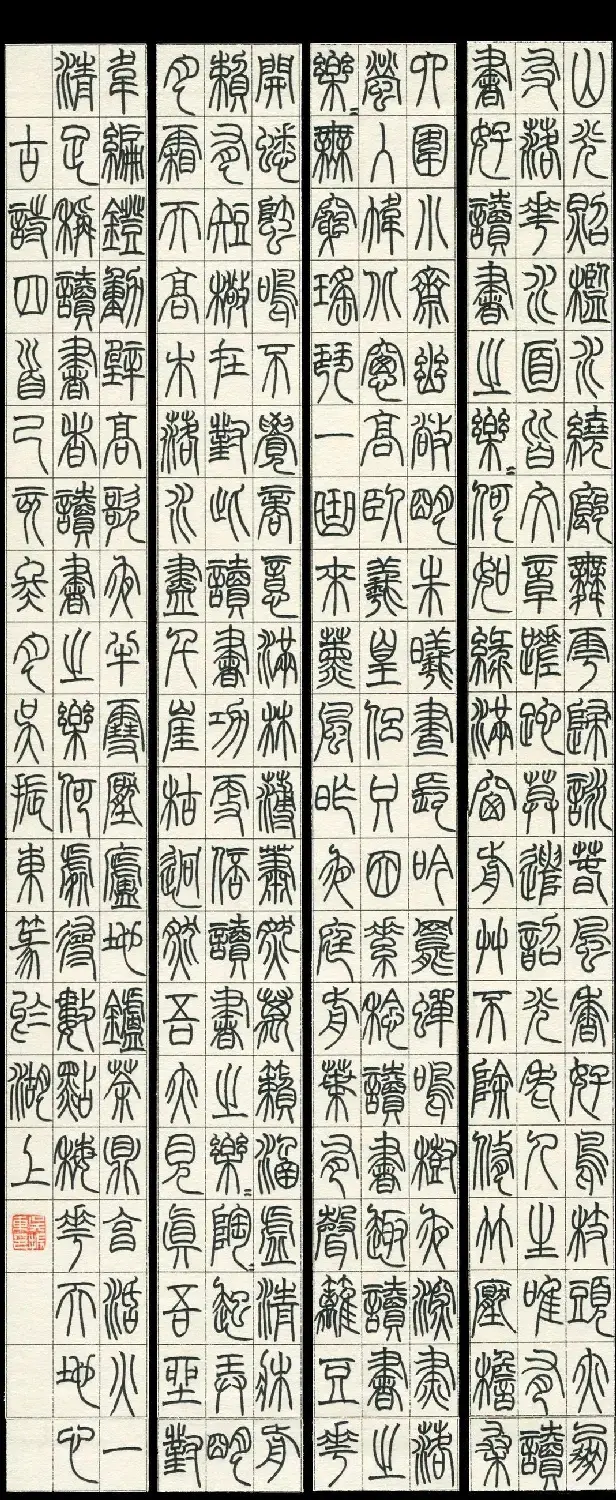 山光照檻水繞廊舞雩歸詠春風香好鳥枝頭亦朋
友落花水面皆文章蹉跎莫遣韶光老人生唯有讀
書好讀書之樂=何如綠滿窗前艸不除修竹壓檐桑
四圍小齋幽敞明朱曦晝長吟罷蟬鳴樹夜深燼落
螢入幃北窗高臥羲皇侶只因素稔讀書趣讀書之
樂=無窮瑤琴一曲來薰風昨夜庭前葉有聲籬豆花
開蟋蟀鳴不覺商意滿林薄蕭然萬籟涵虛清牀前
賴有短檠在對此讀書功更倍讀書之樂=陶=起弄明
月霜天高木落水盡千崖枯迥然吾亦見真吾坐對
韋編鐙動壁高歌夜半雪壓廬地鑪茶鼎烹活火一
清足稱讀書者讀書之樂何處尋數點梅花天地心
古詩四首乙亥月吳振東篆於湖上